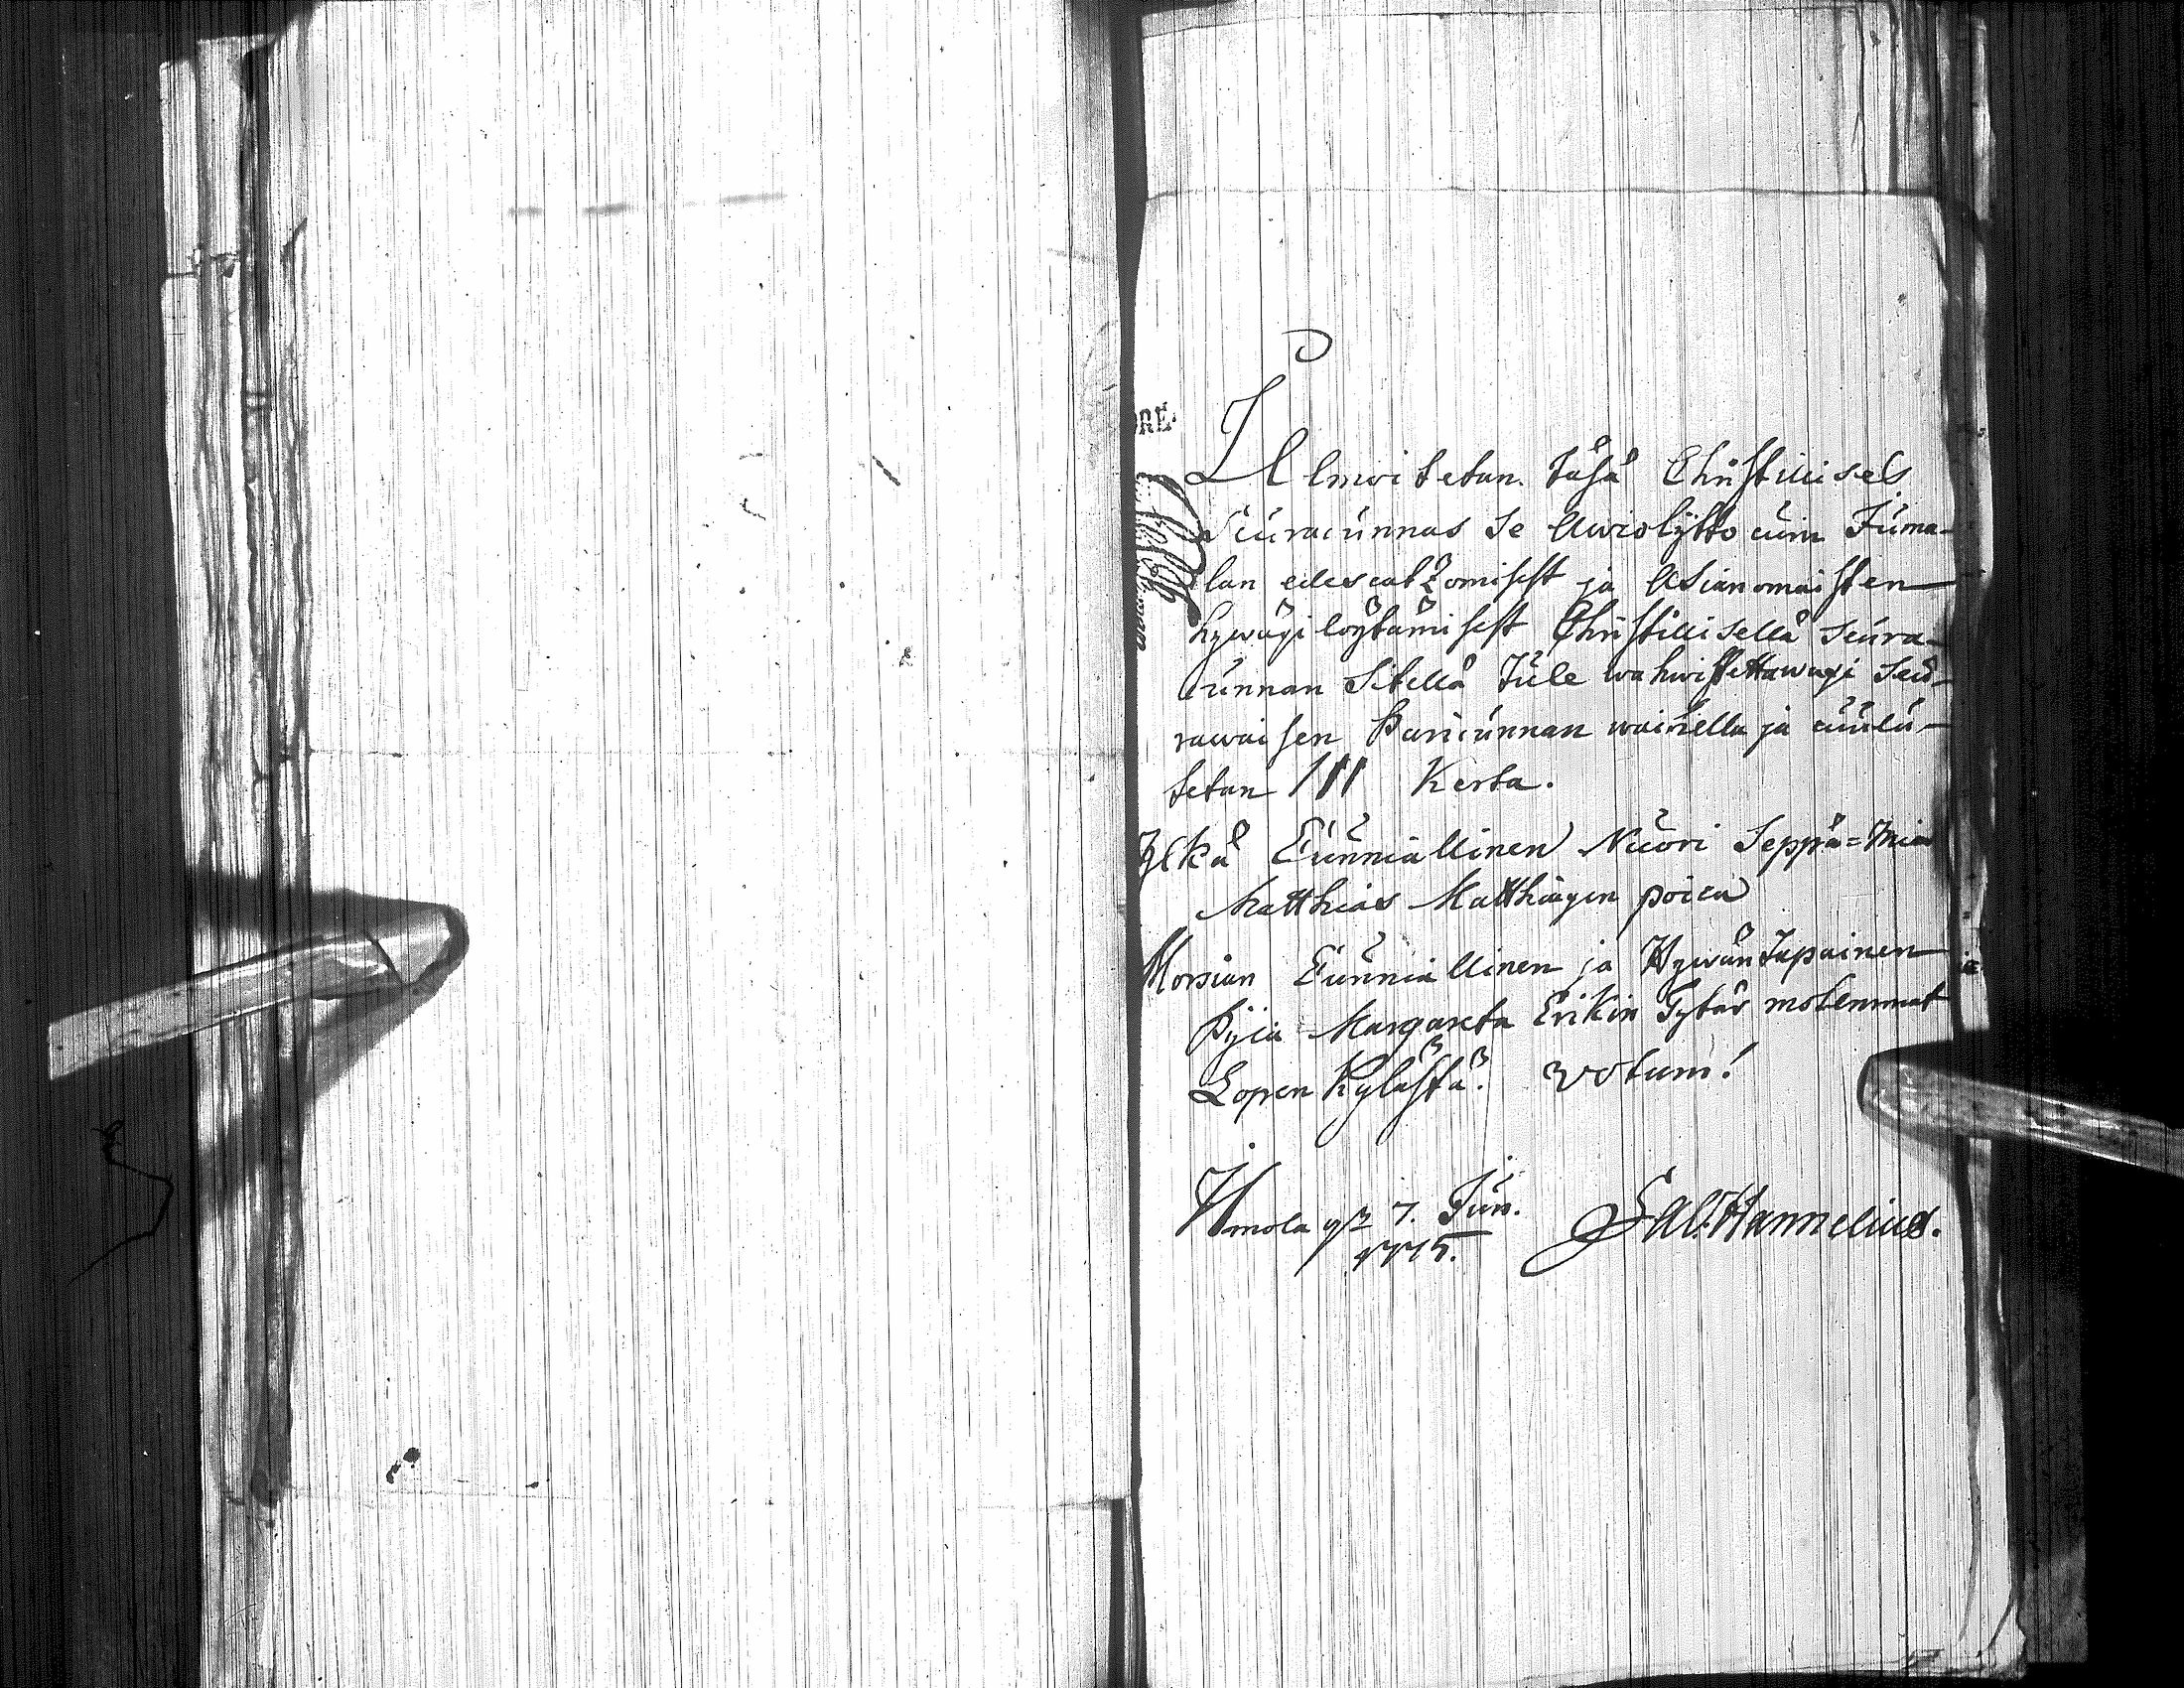 ORE
Ilmoitetan täsä Christillises
Seuracunnas se Awioskytkö cuin Juma-
lan edescatzomisest ja Asianomaisten
hywäxi löytämisest Christillisellä Seura-
cunnan Sitellä tule wahwistettawaxi Seu-
rawaisen Pariscunnan waihella ja cuulu-
tetan III Kerta.
Ylkä Cunniallinen Nuori Seppä=Mies
Matthias Matthiaxen poica
Morsian Cunniallinen ja Hywän Tapainen
Pijca Margareta Erikin Tytär molemmat
Lopen Kylästä. Votum!
Urmola 7. Jun.
1775.
Sal. Hannelius.